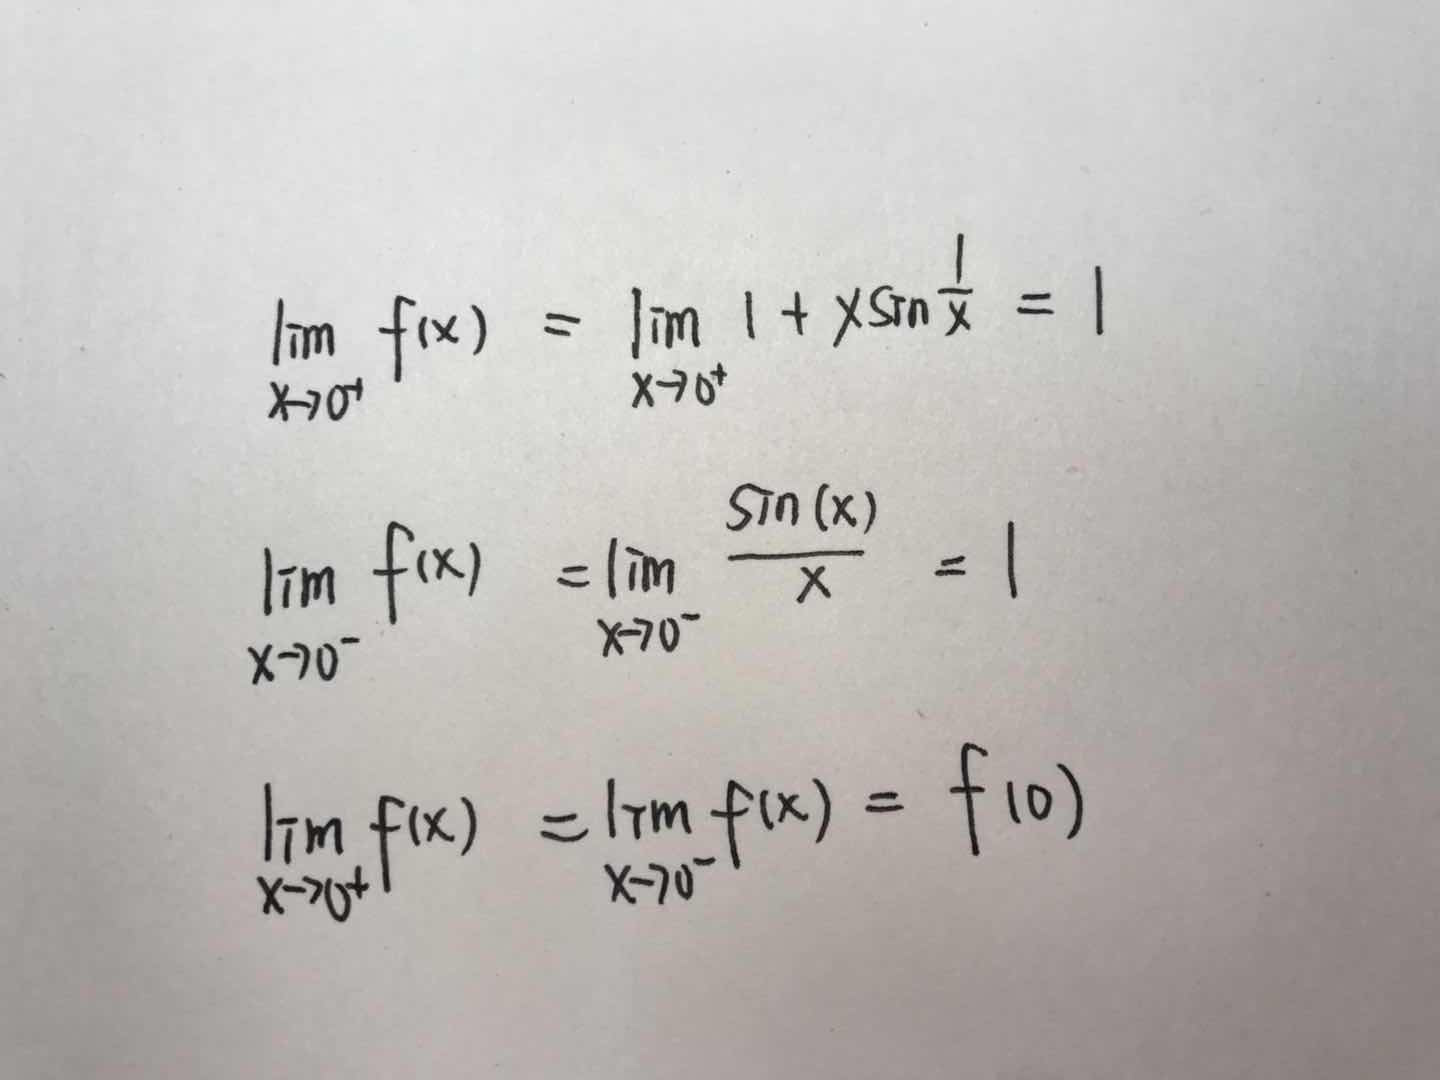 lim_{x→0⁺} f(x) = lim_{x→0⁺} 1 + x sin 1/x = 1
lim_{x→0⁻} f(x) = lim_{x→0⁻} sin(x)/x = 1
lim_{x→0⁺} f(x) = lim_{x→0⁻} f(x) = f(0)